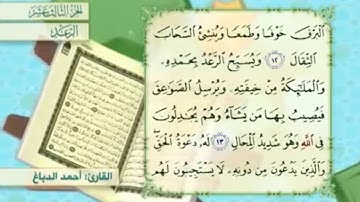 الجزء الثالث عشر
الرعد
ٱلۡبَرۡقَ خَوۡفٗا وَطَمَعٗا وَيُنشِئُ ٱلسَّحَابَ
ٱلثِّقَالَ ١٢ وَيُسَبِّحُ ٱلرَّعۡدُ بِحَمۡدِهِۦ
وَٱلۡمَلَٰٓئِكَةُ مِنۡ خِيفَتِهِۦ وَيُرۡسِلُ ٱلصَّوَٰعِقَ
فَيُصِيبُ بِهَا مَن يَشَآءُ وَهُمۡ يُجَٰدِلُونَ
فِي ٱللَّهِ وَهُوَ شَدِيدُ ٱلۡمِحَالِ ١٣ لَهُۥ دَعۡوَةُ ٱلۡحَقِّۖ
وَٱلَّذِينَ يَدۡعُونَ مِن دُونِهِۦ لَا يَسۡتَجِيبُونَ لَهُم
القارئ: أحمد الدباغ